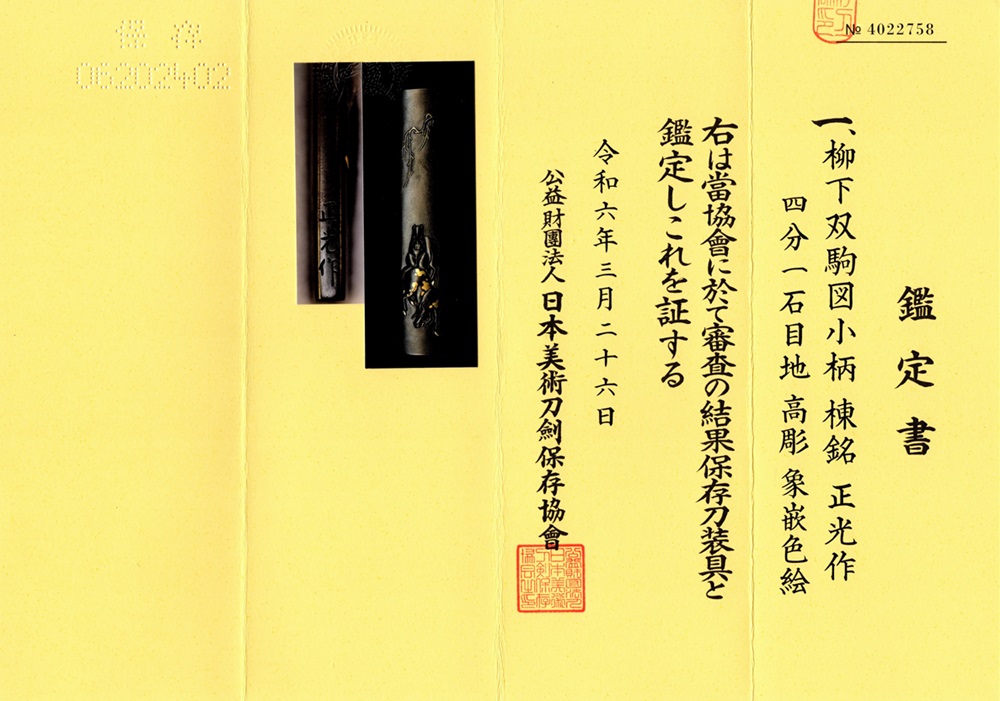 № 4022758
鑑定書
一、柳下双駒図小柄 棟銘 正光作
四分一石目地 高彫 象嵌色絵
右は當協會に於て審査の結果保存刀装具と
鑑定しこれを証する
令和六年三月二十六日
公益財團法人 日本美術刀劍保存協會
正光作
保存
06202402